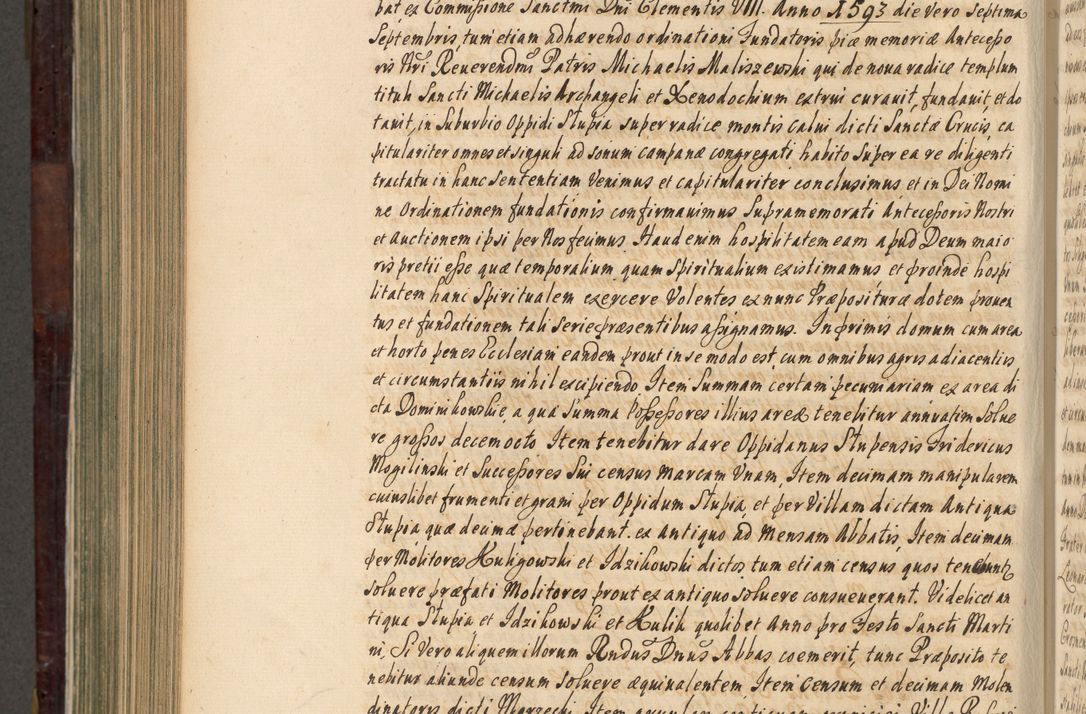 bat ex Commissione Sanctmi Dni Clementis VIII. Anno 1593 die vero Septima
Septembris, tum etiam adhærendo ordinationi Fundatoris piæ memoriæ Antecesso
ris Nri Reuerendmi Patris Michaelis Maliszewski qui de noua radice templum
tituli Sancti Michaelis Archangeli et Xenodochium extrui curauit, fundauit, et do
tauit, in Suburbio Oppidi Stupia super radice montis Calui dicti Sanctæ Crucis, ca
pitulariter omnes et singuli ad sonum campanæ congregati habito super ea re diligenti
tractatu in hanc Sententiam Venimus et capitulariter conclusimus et in Dei Nomi
ne Ordinationem fundationis confirmauimus Supramemorati Antecessoris Nostri
et Auctionem ipsi per Nos fecimus. Haud enim hospilitatem eam apud Deum maio
ris pretii esse quæ temporalium quam Spiritualium existimamus et proinde hospi
litatem hanc Spiritualem exercere Volentes ex nunc Præposituræ dotem prouen
tus et fundationem tali serie præsentibus assignamus. In primis domum cum area
et horto penes Ecclesiam eandem prout in se modo est, cum omnibus agris adiacentiis
et circumstantiis nihil excipiendo Item Summam certam pecuniariam ex area di
cta Dominikowskie, a qua Summa Possessores illius areæ tenebitur annuatim Solue
re grossos decem octo Item tenebitur dare Oppidanus Stupensis Fridericus
Mogilinski et Successores Sui census Marcam Vnam, Item decimam manipularem
cuiuslibet frumenti et grani per Oppidum Stupia, et per Villam dictam Antiqua
Stupia quæ decimæ pertinebant ex antiquo ad Mensam Abbatis, Item decimam
per Molitores Kuligowski et Idzikowski dictos, tum etiam census quos tenebuntur
Soluere præfati Molitores prout ex antiquo soluere consueuerant. Videlicet an
tiqua Stupia et Idzikowski et Kulik quolibet Anno pro Festo Sancti Marti
ni, Si Vero aliquem illorum Rndus Dnus Abbas coemerit, tunc Præposito te
nebitur aliunde censum soluere æquiualentem, Item Censum et decimam Molen
dinatoris dicti Marzecki Item